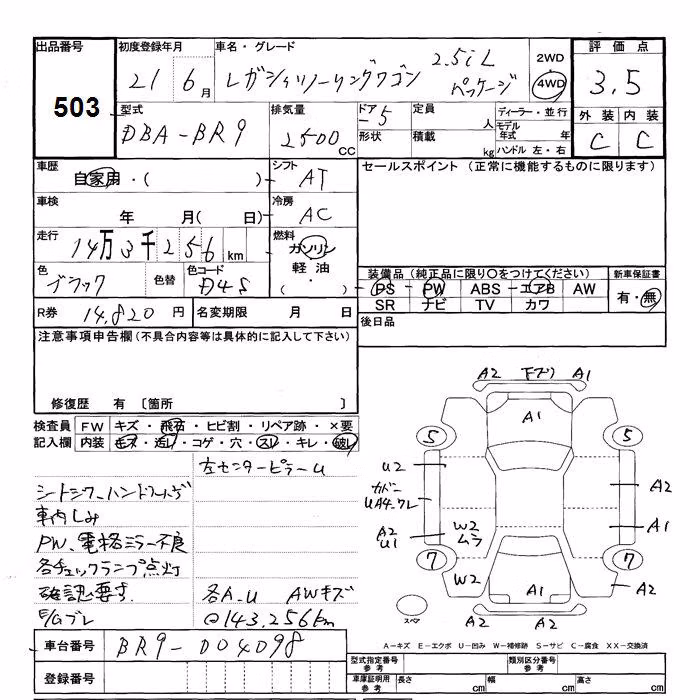 出品番号 初度登録年月 車名・グレード 2WD 評価点
503
21 6月 レガシィツーリングワゴン 2.5iL パッケージ 4WD 3.5
型式 排気量 ドア 定員 人 ディーラー・並行 外装 内装
DBA-BR9 2500cc 5 形状 積載 kg モデル年式 年 ハンドル 左・右 C C
車歴 シフト セールスポイント (正常に機能するものに限ります)
自家用・( ) AT
車検 冷房
年 月( 日) AC
走行 燃料
14万3千256km ガソリン
色 色替 色コード 軽油 装備品 (純正品に限り○をつけてください) 新車保証書
ブラック D4S ・( ) PS PW ABS エアB AW 有・無
SR ナビ TV カワ
R券 14,820円 名変期限 月 日 後日品
注意事項申告欄(不具合内容等は具体的に記入して下さい)
修復歴 有 〔箇所 〕
検査員 FW キズ・飛石・ヒビ割・リペア跡・×要
記入欄 内装 キズ・汚レ・コゲ・穴・スレ・キレ・破レ
左センターピラーU
シートシワ
車内しみ
PW、電格ミラー不良
各チェックランプ点灯
確認要す 各A.U AWキズ
E/Gブレ @143,256km
A2 下ズリ A1
A1
5 5
U2
カバー
UA4 ワレ A2
A2 W2 A1
U1 ムラ
7 7
W2 A1 A2
スペア A2
A-キズ E-エクボ U-凹み W-補修跡 S-サビ C-腐食 XX-交換済
車台番号 BR9-004098
型式指定番号 参考 類別区分番号 参考
登録番号 車庫証明用 参考 長さ cm 幅 cm 高さ cm